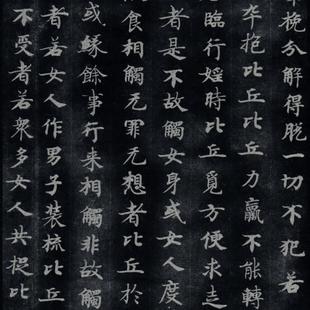 挽分解得脱一切不犯若
卒抱比丘比丘力羸不能轉
臨行婬時比丘覓方便求走
者是不故觸女身或女人度
食相觸无罪无想者比丘於
或緣餘事行来相觸非故觸
者若女人作男子装梳比丘
不受者若衆多女人共捉比